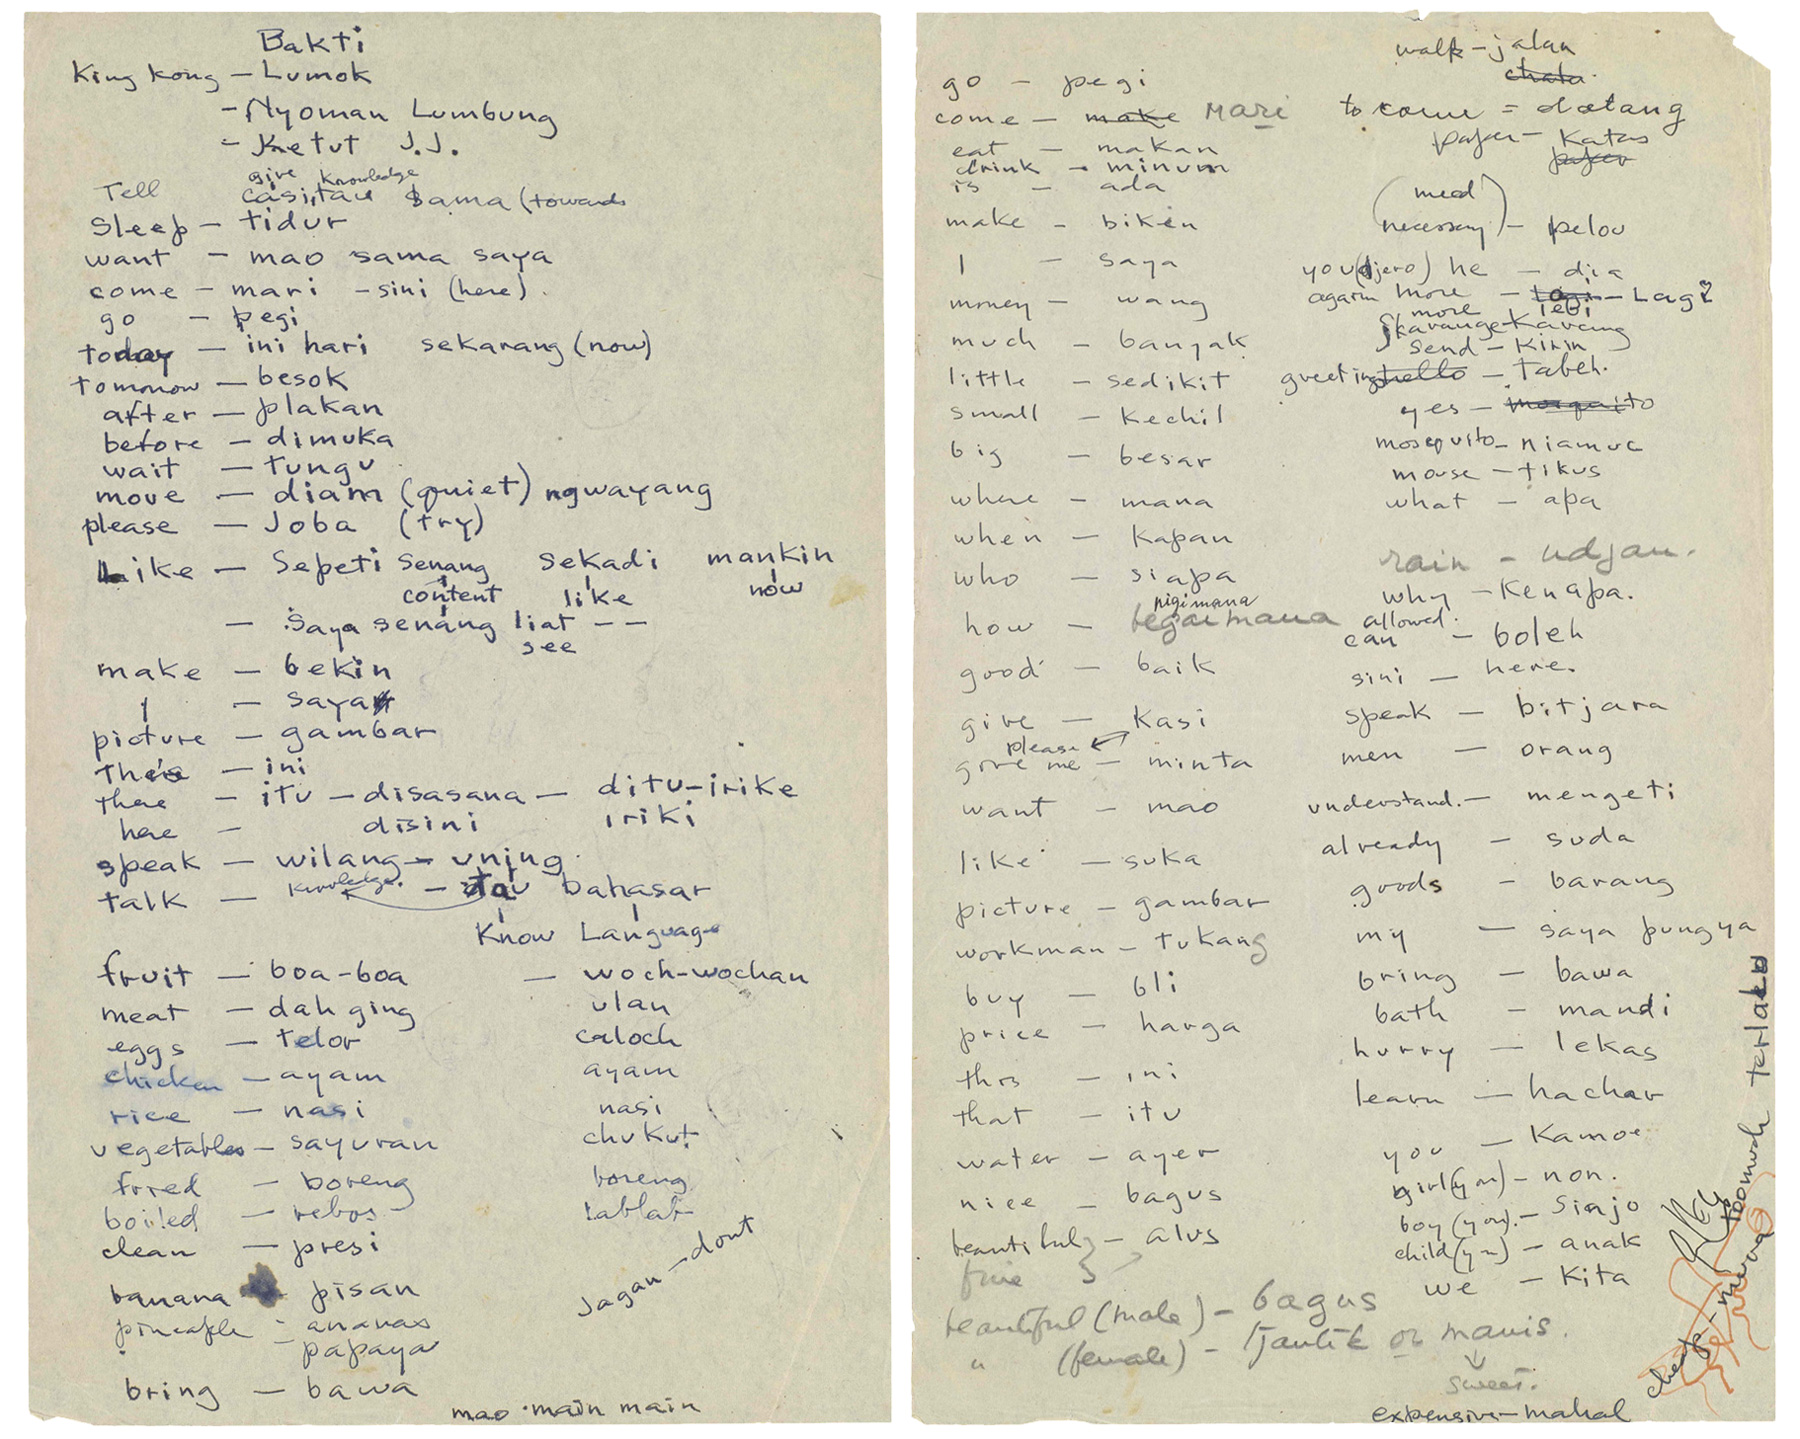 Bakti
King Kong – Lumok
– Nyoman Lumbung
– Ketut J.J.
give knowledge
Tell casi, tau sama (towards
Sleep – tidur
want – mao sama saya
come – mari – sini (here)
go – pegi
today – ini hari sekarang (now)
tomorrow – besok
after – plakan
before – dimuka
wait – tungu
move – diam (quiet) ngwayang
please – Joba (try)
Like – Sepeti senang sekadi mankin
content like now
– saya senang liat – –
see
make – bekin
I – saya
picture – gambar
this – ini
there – itu – disasana – ditu-irike
here – disini iriki
speak – wilang – uning
talk – knowledge – tau bahasar
Know Language
fruit – boa-boa – woch-wochan
meat – dahging ulan
eggs – telor caloch
chicken – ayam ayam
rice – nasi nasi
vegetables – sayuran chukut
fried – boreng boreng
boiled – rebos lablab
clean – presi
Jagan – dont
banana pisan
pineapple – ananas
papaya
bring – bawa
mao main main
go – pegi
come – make mari
eat – makan
drink – minum
is – ada
make – biken
I – saya
money – wang
much – banyak
little – sedikit
small – kechil
big – besar
where – mana
when – kapan
who – siapa
pigimana
how – begaimana
good – baik
give – kasi
please
give me – minta
want – mao
like – suka
picture – gambar
workman – tukang
buy – bli
price – harga
this – ini
that – itu
water – ayer
nice – bagus
beautiful } – alus
fine
beautiful (male) – bagus
" (female) – tjantik or manis.
sweet.
walk – jalan
to come = datang
paper – Katas
paper
(need
necessary) – pelou
you (djero) he – dia
again more – lagi – Lagi
more lebi
karange – Karang
send – Kirin
greeting hello – Tabeh.
yes – mosquito
mosquito – niamuc
mouse – tikus
what – apa
rain – udjan.
why – Kenapa.
allowed
can – boleh
sini – here.
speak – bitjara
men – orang
understand. – mengeti
already – suda
goods – barang
my – saya pungya
bring – bawa
bath – mandi
hurry – lekas
learn – hachar
you – Kamoe
girl (you) – non.
boy (you). – Sinjo
child (you) – anak
we – Kita
expensive – mahal
cheap – mura
too much terlalu